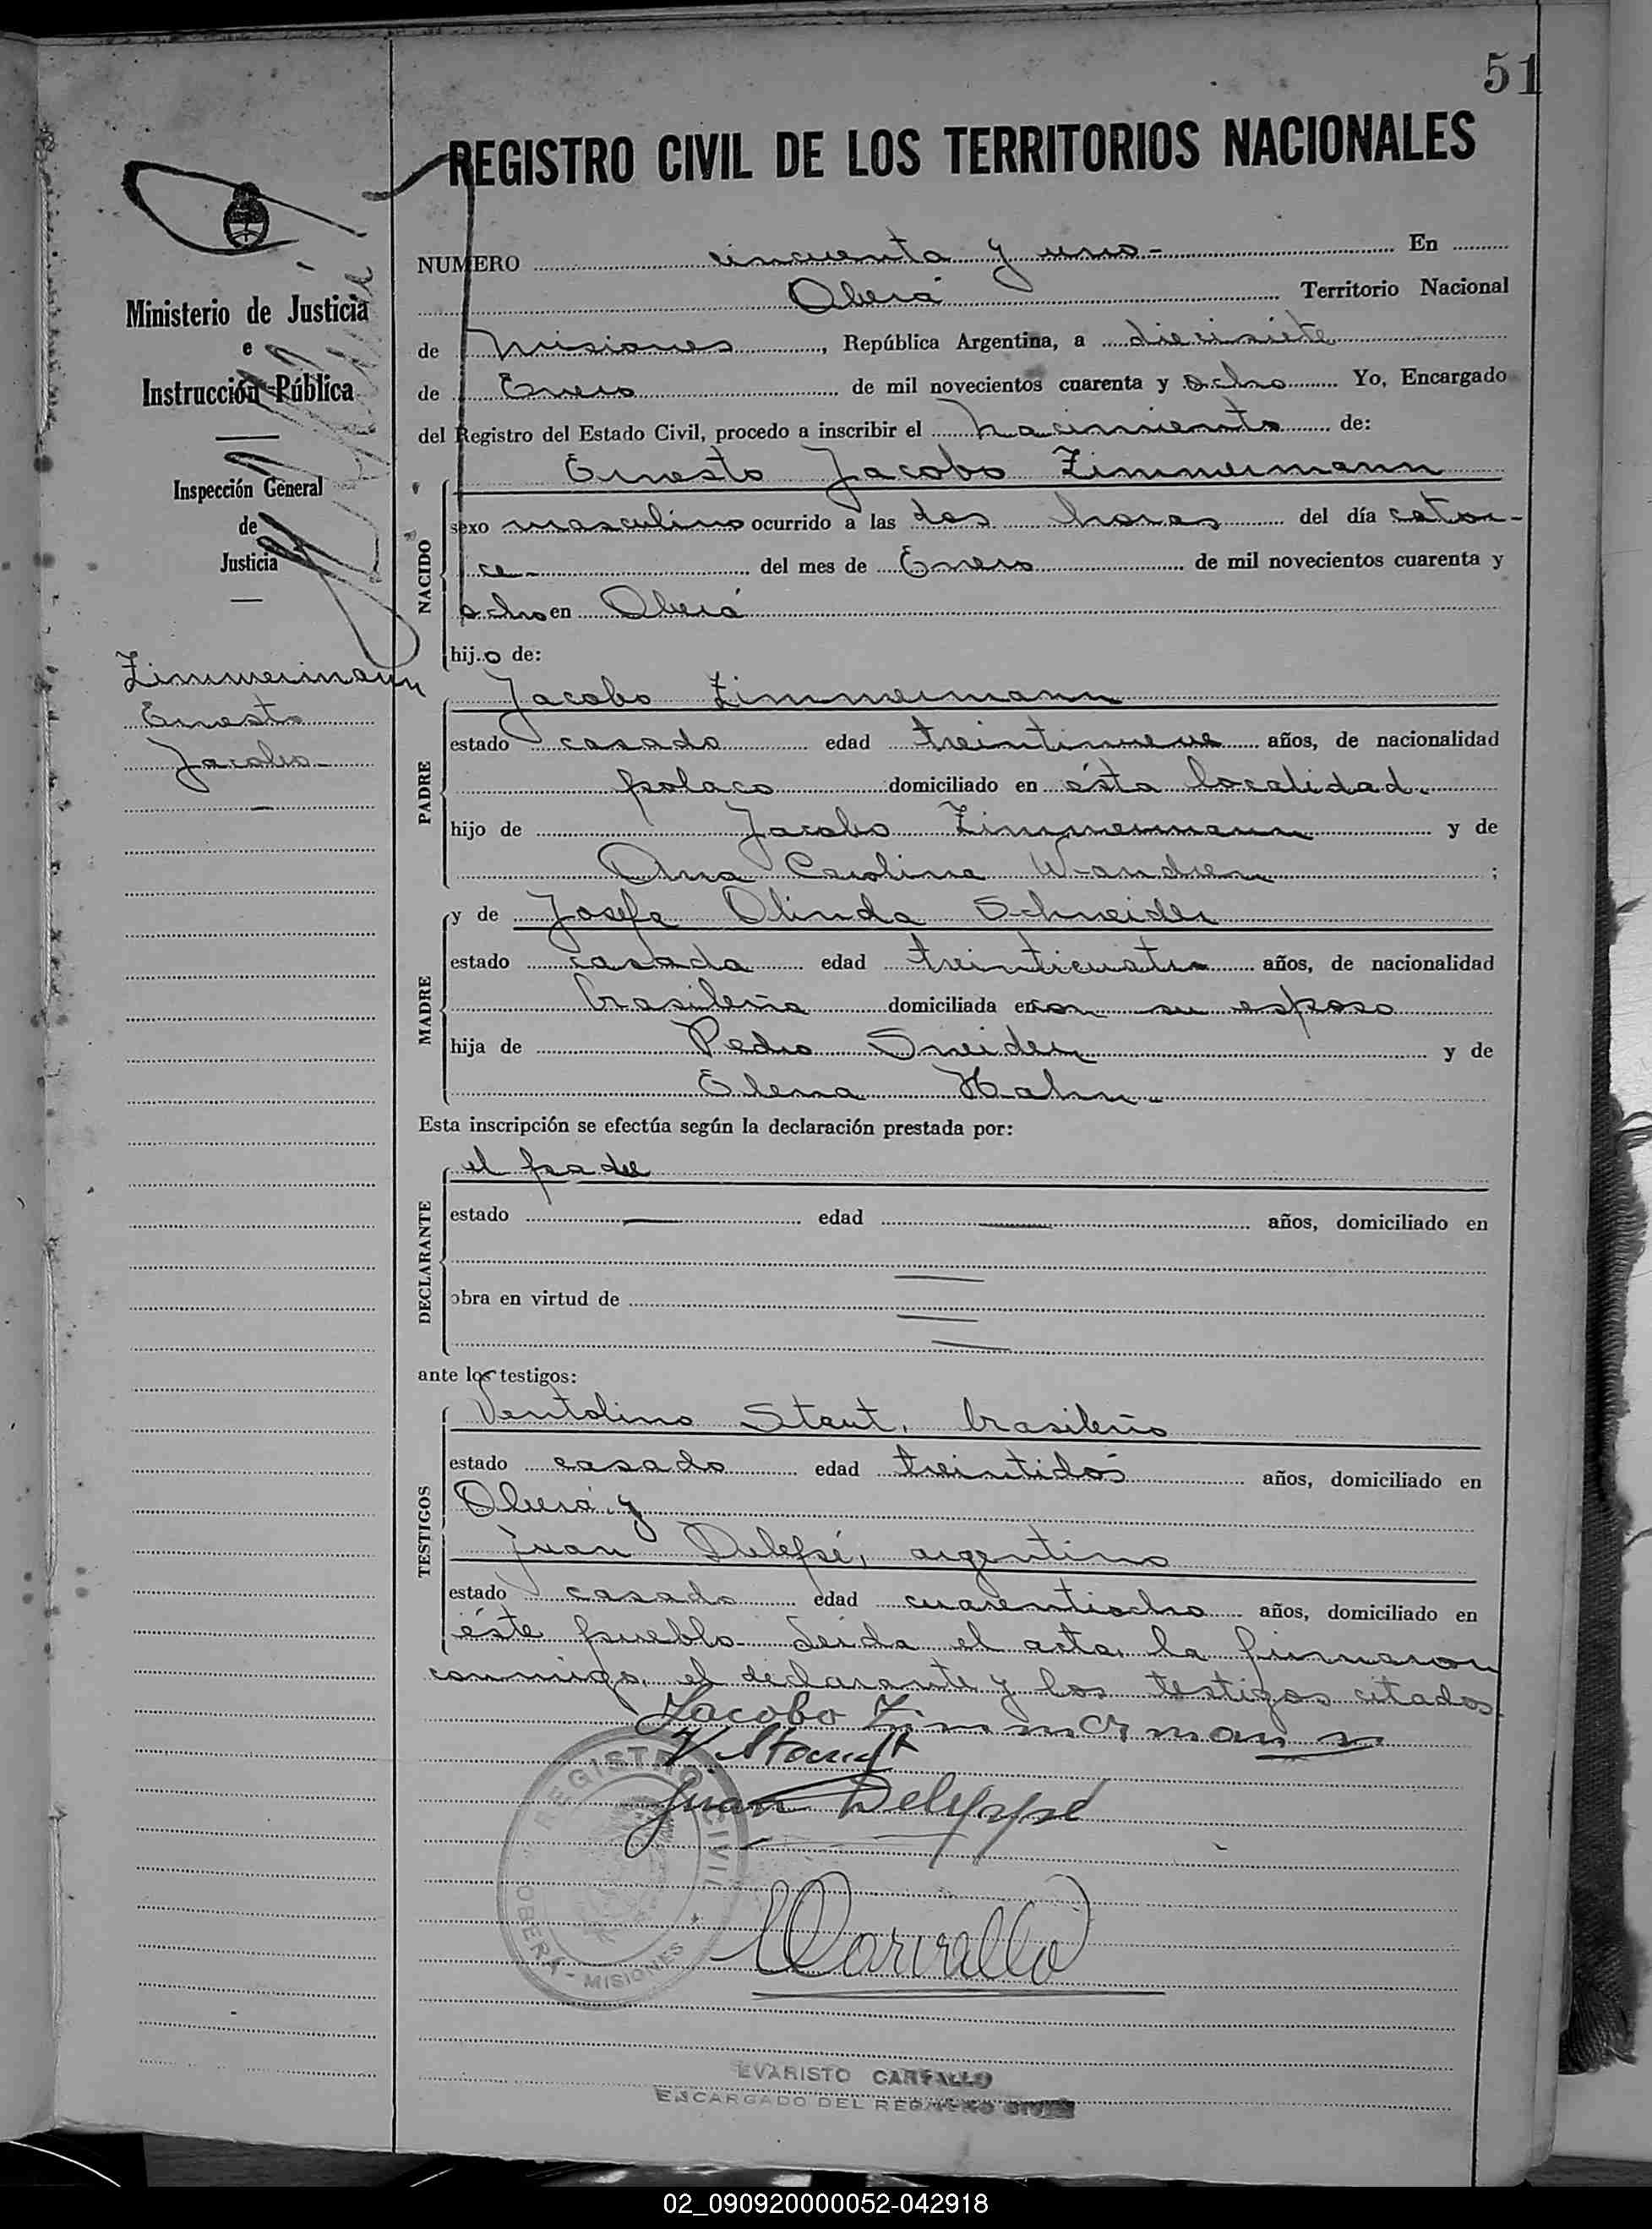 51
REGISTRO CIVIL DE LOS TERRITORIOS NACIONALES
NUMERO cincuenta y uno- En
Oberá Territorio Nacional
de Misiones, República Argentina, a diecisiete
de Enero de mil novecientos cuarenta y ocho Yo, Encargado
del Registro del Estado Civil, procedo a inscribir el nacimiento de:
Ernesto Jacobo Zimmermann
NACIDO
sexo masculino ocurrido a las dos horas del día cator-
ce- del mes de Enero de mil novecientos cuarenta y
ocho en Oberá
hijo de:
PADRE
Jacobo Zimmermann
estado casado edad treintinueve años, de nacionalidad
polaco domiciliado en ésta localidad.
hijo de Jacobo Zimmermann y de
Ana Carolina Wandrey ;
MADRE
y de Josefa Olinda Schneider
estado casada edad treinticuatro años, de nacionalidad
brasileña domiciliada en con su esposo
hija de Pedro Sneider y de
Elena Hahn-
Esta inscripción se efectúa según la declaración prestada por:
DECLARANTE
el padre
estado edad años, domiciliado en
obra en virtud de
ante los testigos:
TESTIGOS
Ventolino Staut, brasileño
estado casado edad treintidós años, domiciliado en
Oberá y
Juan Delepé, argentino
estado casado edad cuarentiocho años, domiciliado en
éste pueblo- Leída el acta, la firmaron
conmigo, el declarante y los testigos citados.
Jacobo Zimmermann
V. Staudt
Juan Deleppé
REGISTRO CIVIL
OBERA - MISIONES
Carvallo
EVARISTO CARVALLO
ENCARGADO DEL REGISTRO CIVIL
Ministerio de Justicia
e
Instrucción Pública
Inspección General
de
Justicia
Zimmermann
Ernesto
Jacobo-
02_090920000052-042918